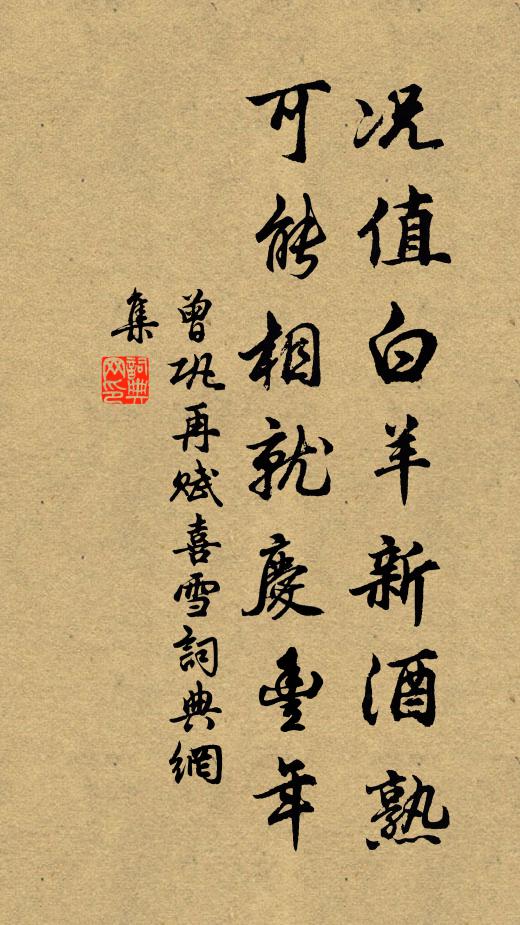 况值白羊新酒熟
可能相就慶豐年
曾巩再赋喜雪詞典網
集
詞典网印